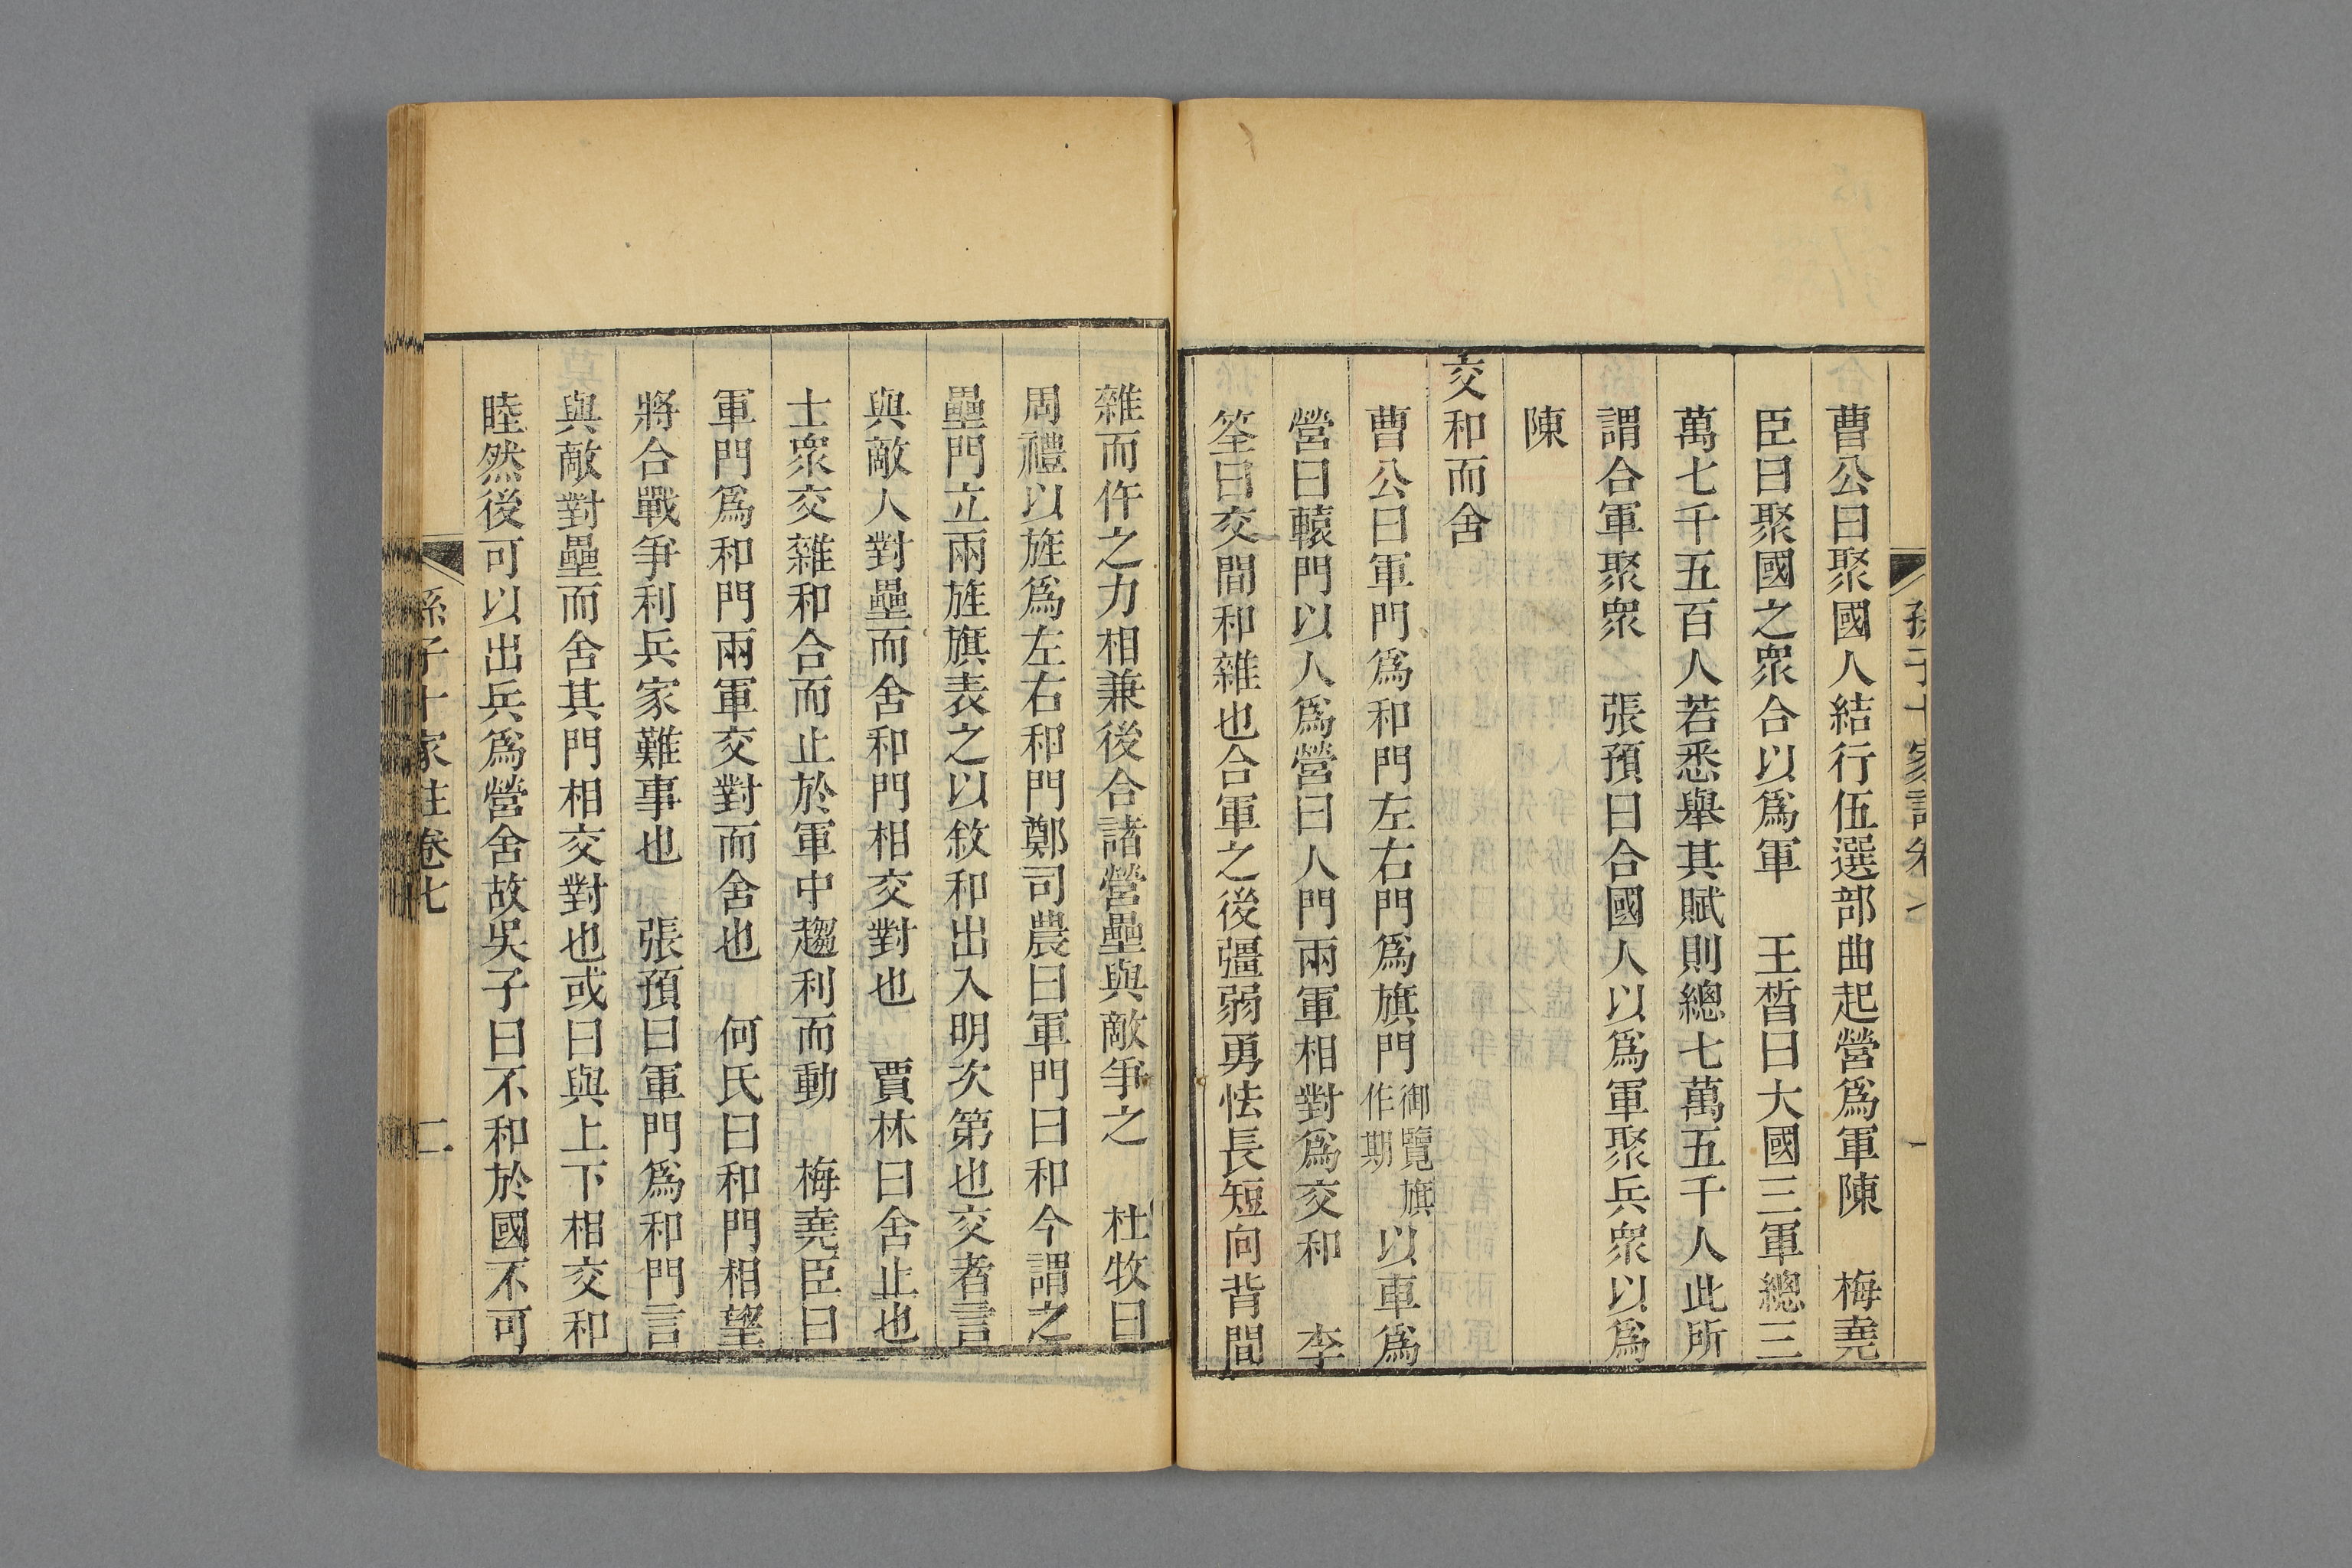 曹公曰聚國人結行伍選部曲起營爲軍陳　梅堯
臣曰聚國之衆合以爲軍　王晳曰大國三軍總三
萬七千五百人若悉舉其賦則總七萬五千人此所
謂合軍聚衆　張預曰合國人以爲軍聚兵衆以爲
陳
交和而舍
曹公曰軍門爲和門左右門爲旗門御覽旗作期以車爲
營曰轅門以人爲營曰人門兩軍相對爲交和　李
筌曰交間和雜也合軍之後彊弱勇怯長短向背間
雜而仵之力相兼後合諸營壘與敵爭之　杜牧曰
周禮以旌爲左右和門鄭司農曰軍門曰和今謂之
壘門立兩旌旗表之以敘和出入明次第也交者言
與敵人對壘而舍和門相交對也　賈林曰舍止也
士衆交雜和合而止於軍中趨利而動　梅堯臣曰
軍門爲和門兩軍交對而舍也　何氏曰和門相望
將合戰爭利兵家難事也　張預曰軍門爲和門言
與敵對壘而舍其門相交對也或曰與上下相交和
睦然後可以出兵爲營舍故吳子曰不和於國不可
孫子十家註卷七　二